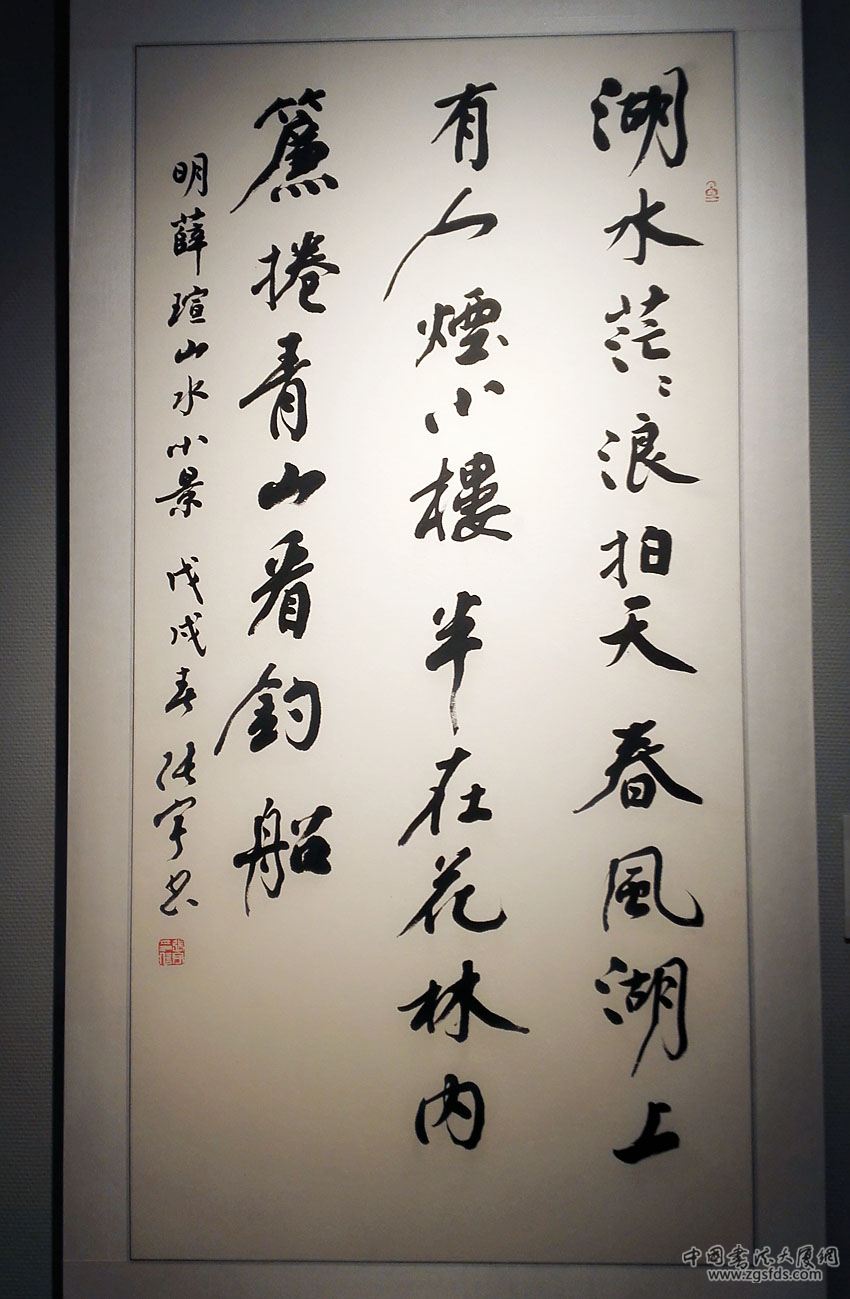 湖水茫々浪拍天春風湖上
有人煙小樓半在花林内
簾捲青山看釣船
明薛瑄山水小景 戊戌春 張宇書
中國書法大廈網
www.zgsfds.com